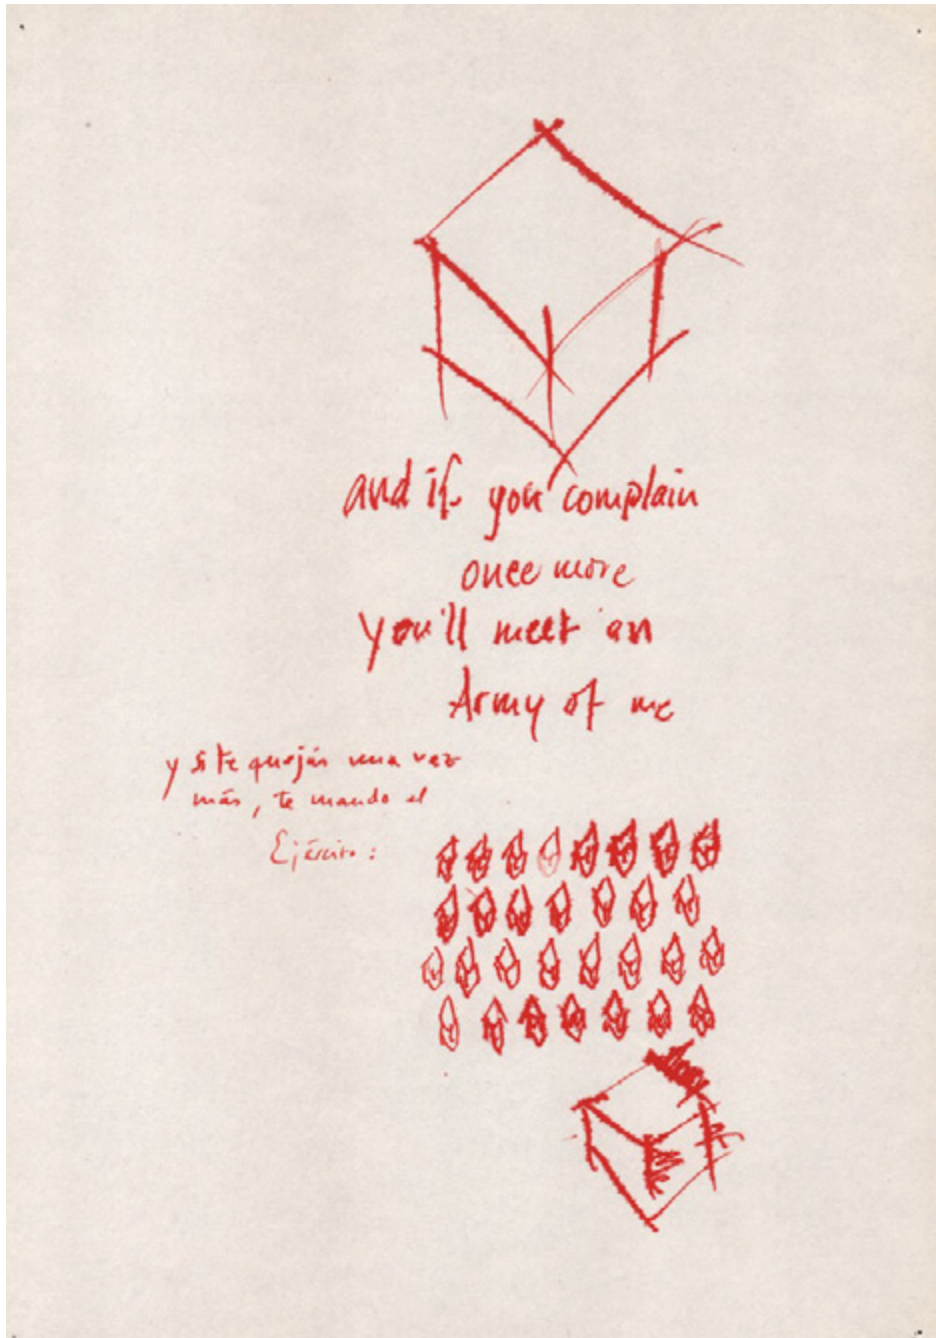 and if you complain
once more
You'll meet an
Army of me
y si te quejás una vez
más, te mando el
Ejército: